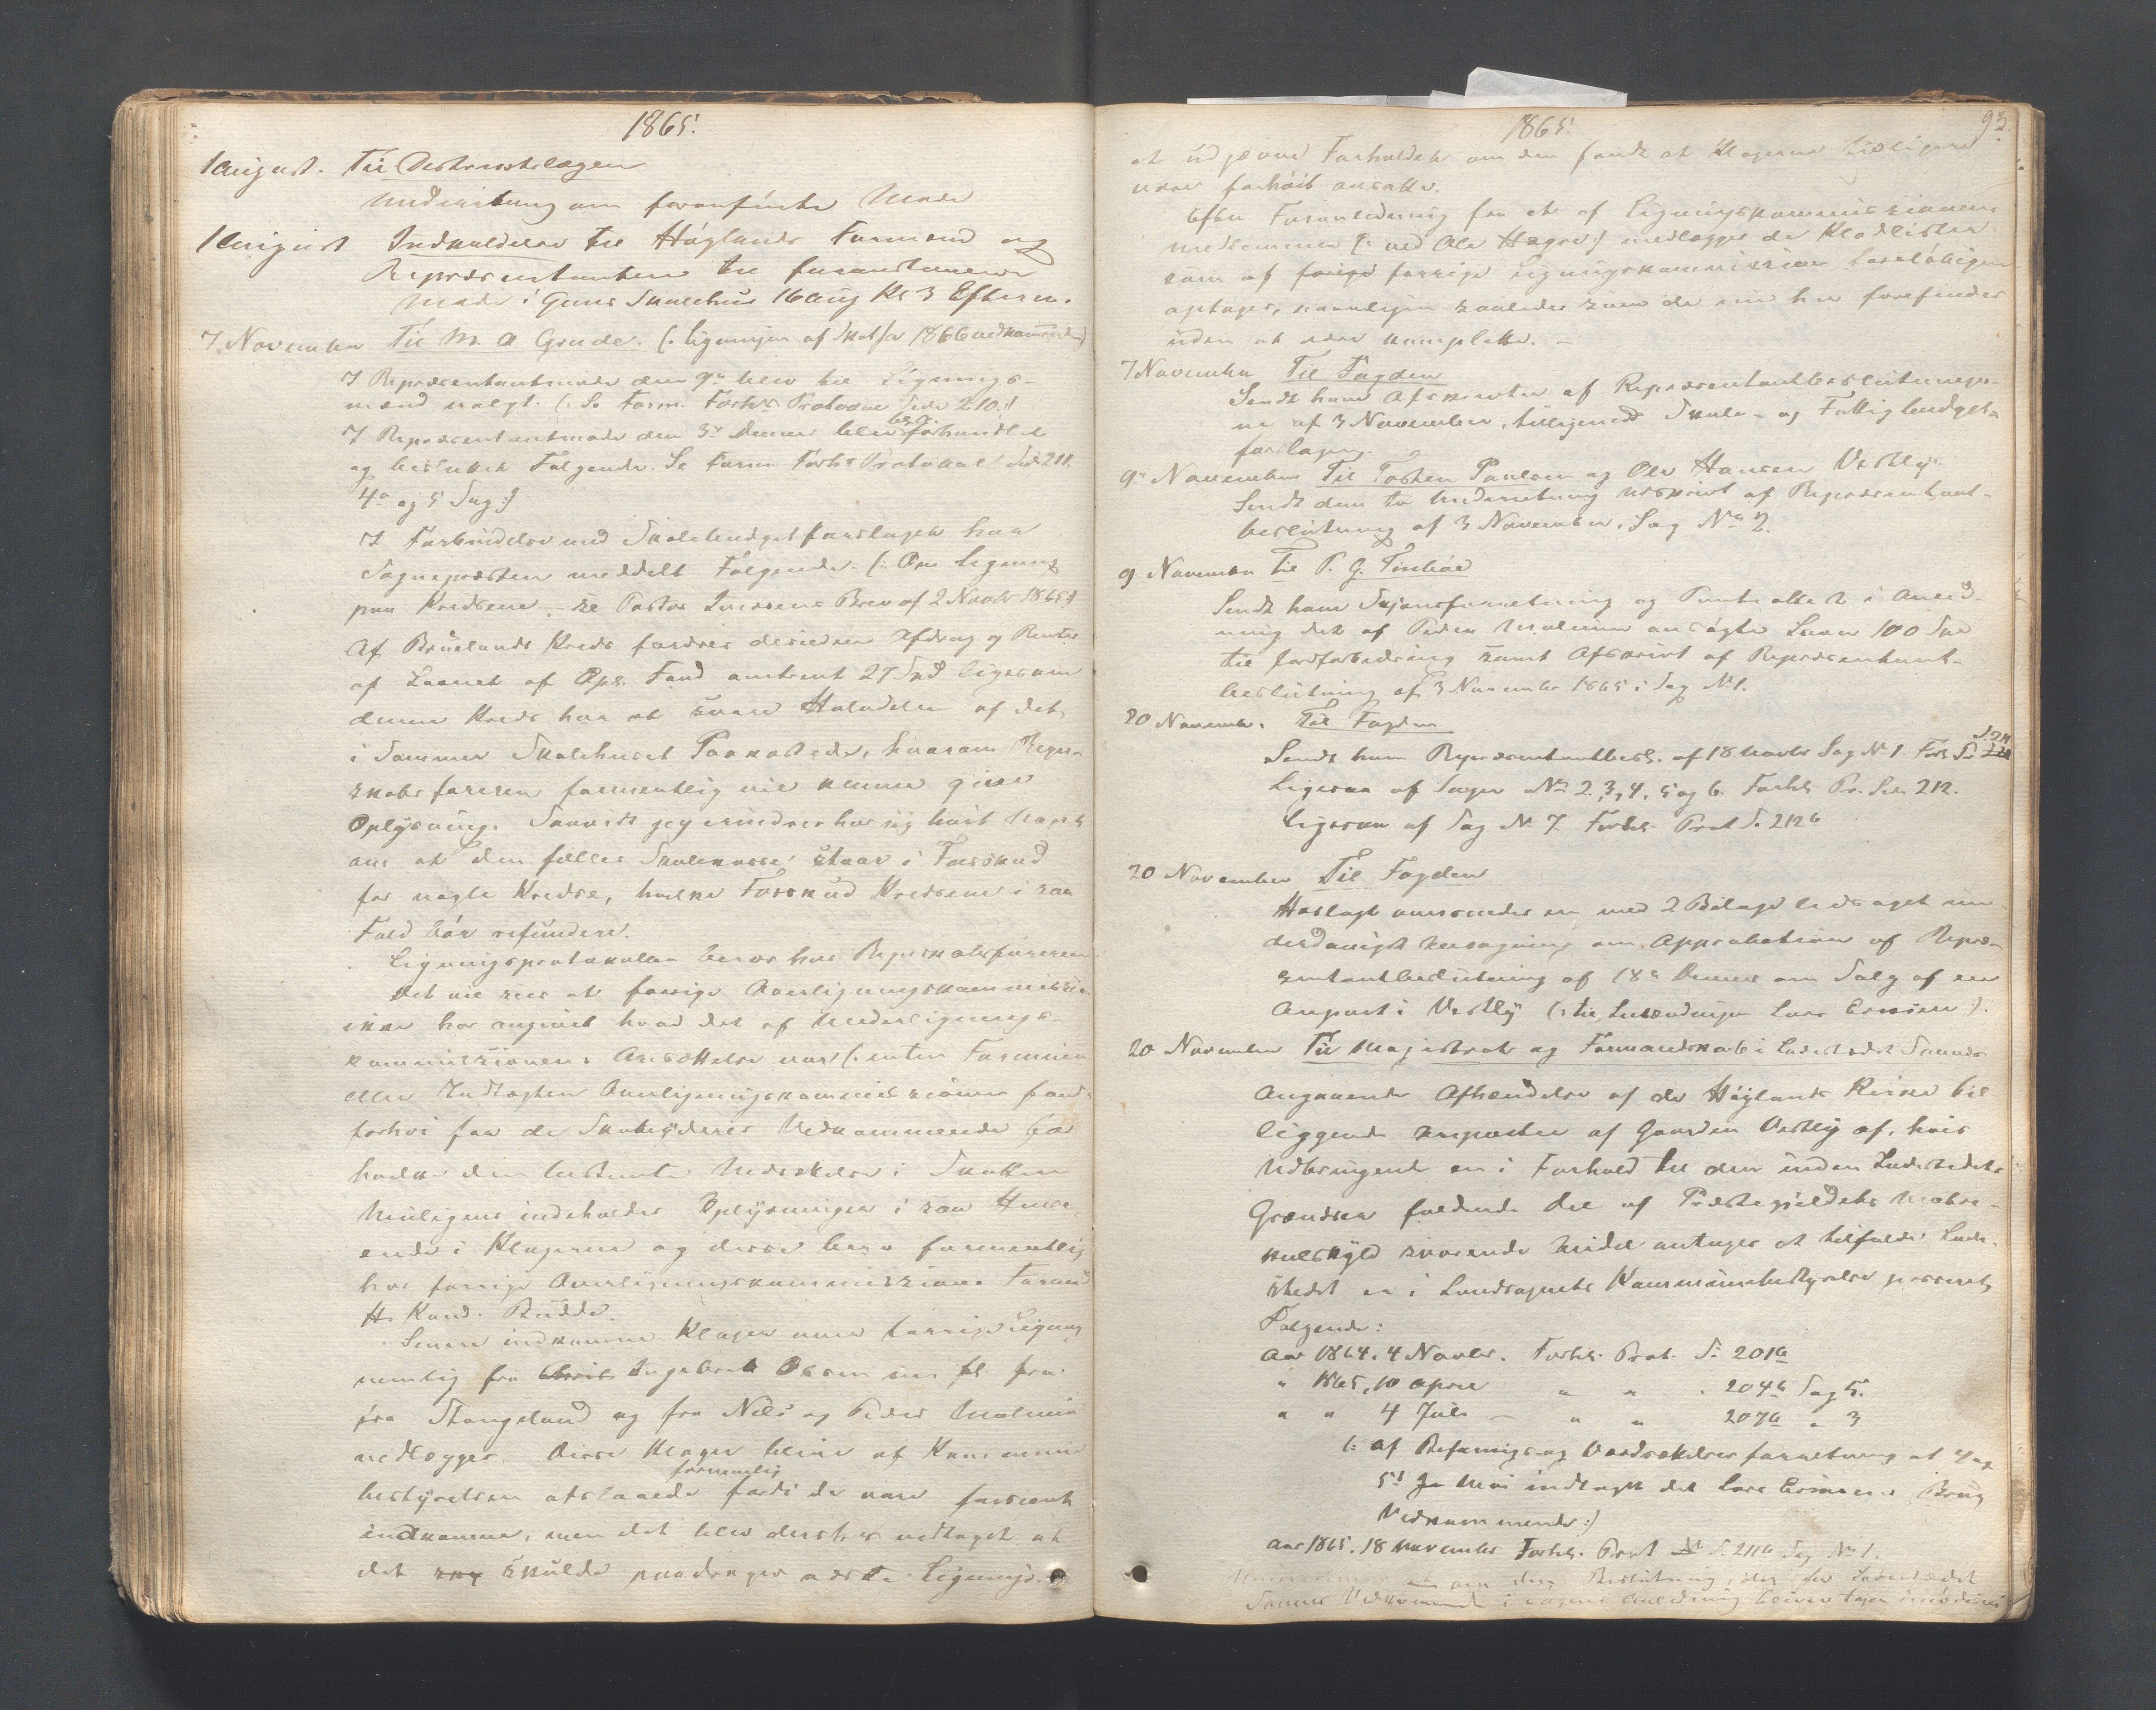 1865.
1 August. Til Distriktslægen
Underretning om foranførte Møde
1 August Indkaldelse til Høylands Formænd og
Repræsentanter til foranstaaende
Møde i Gans Skolehus 16 Aug Kl 3 Efterm.
7. November Til M. A Grude. (: Ligningen af Skat for 1866 vedkommende)
I Repræsentantmøde den 9de blev til Lignings-
mænd valgt. (: Se Form. Forhs Protocol Side 210.:)
I Repræsentantmøde den 3de Dennes blev forhandlet
og besluttet Følgende. Se Form. Forhs Protokol Side 211.
4de og 5 Sag:)
I Forbindelse med Skolebudgetforslaget har
Sognepresten meddelt Følgende. (: Om Ligning
paa Kredsene – se Pastor Brev af 2 Novbr 1865:)
Af Bruelands Kreds fordres desuden Afdrag og Renter
af Laanet af Opl. Fond omtrent 27 Spd ligesom
denne Kreds har at svare Halvdelen af det
i Sommer Skolehuset Paakostede, hvorom Regn-
skabsføreren formentlig vil kunne give
Oplysning. Saavidt jeg erindrer har jeg hørt Noget
om at den fælles Skolekasse staar i Forskud
for nogle Kredse, hvilke Forskud Kredsene i saa
Fald bør refundere.
Ligningsprotokollen beror hos Regnskabsføreren
Det vil sees at forrige Overligningskommission
ikke har angivet hvad der af Underlignings-
kommissionens Ansættelse var (: enten Formuen
eller Indtægten Overligningskommissionen fandt
forhøi for de Skatydere Vedkommende
den bestemte Nedsættelse i Skatten
Muligens indeholdes Oplysninger i saa Hen-
ende i Klagerne og disse bero formentlig
hos forrige Overligningskommissions Formand
Hr Kand. Budde.
Senere indkomne Klager over forrige Ligning
nemlig fra Ingebret Olsen m. fl. fra
fra Stangeland og fra Nils og Peder Malmin
vedlægges. Disse Klager bleve af Kommune
bestyrelsen afslaaede formentlig fordi de vare forsent
indkomne, men det blev derhos vedtaget at
det skulde paadrages næste Lignings-
1865. 93
at udjævne Forholdet om den fandt at Klagerne tidligere
vare forhøit ansatte.
Efter Foranledning fra et af Ligningskommissionens
medlemmer (: ved Ole :) medlægges de Kladlister
som af forrige Ligningskommission
optoges, naanlign saaledes som de nu her forefindes
uden at være komplette. –
7 November Til Fogden
Sendt ham Afskrifter af Repræsentantbeslutninger-
ne af 3 November, tilligemed Skole- og Fattigbudget-
forslagene.
9de November Til Tosten Paulsen og Ole Hansen Vestly.
Sendt dem to Underretning Udskrift af Repræsentant-
beslutning af 3 November. Sag No 2.
9 November Til P. G.
Sendt ham Skjønsforretning og Panteattest i Anled-
ning det af Peder Malmin ansøgte Laan 100 Spd
til Jordforbedring samt Afskrift af Repræsentant-
beslutning af 3 November 1865 i Sag No 1.
20 Novemb. Til Fogden
Sendt ham Repræsentantbesl. af 18 Novbr Sag No 1. Forh.
Ligesaa af Sager No 2. 3, 4, 5 og 6. Forhs. Pr. Side 212.
Ligesaa af Sag No 7. Forhs. Prot S. 212b
20 November Til Fogden
Hoslagt oversendes en med 2 Bilage ledsaget un-
derdanigst Ansøgning om Approbation af Repræ-
sentantbeslutning af 18de Dennes om Salg af en
Anpart i Vestly (: til Lars :).
20 November Til Magistrat og Formandskab i Ladestedet Sannæs
Angaaende Afhændelse af de Høylands Kirke til
liggende Anparter af Gaarden Vestly af, hvis
Udbringende en i Forhold til den inden Ladestedets
Grændser faldende Del af Præstegjeldets Matri-
kulskyld svarende Andel antages at tilfalde Lade-
stedet er i Landsognets Kommunebestyrelse passeret
Følgende:
Aar 1864. 4 Novbr. Forhs. Prot. S. 201a
" 1865, 10 April " " " 204b Sag 5.
" " 4 Juli – " " 207a " 3
(: af Besigtigelses og Værdsættelsesforretning at 4 og
5te Mai indtaget det Lars Brug
Vedkommende:)
Aar 1865. 18 November Forhs. Prot S. 211b Sag No 1.
om den Beslutning, der for Ladestedet
Sannæs Vedkommende i Sagens Anledning bliver tagen